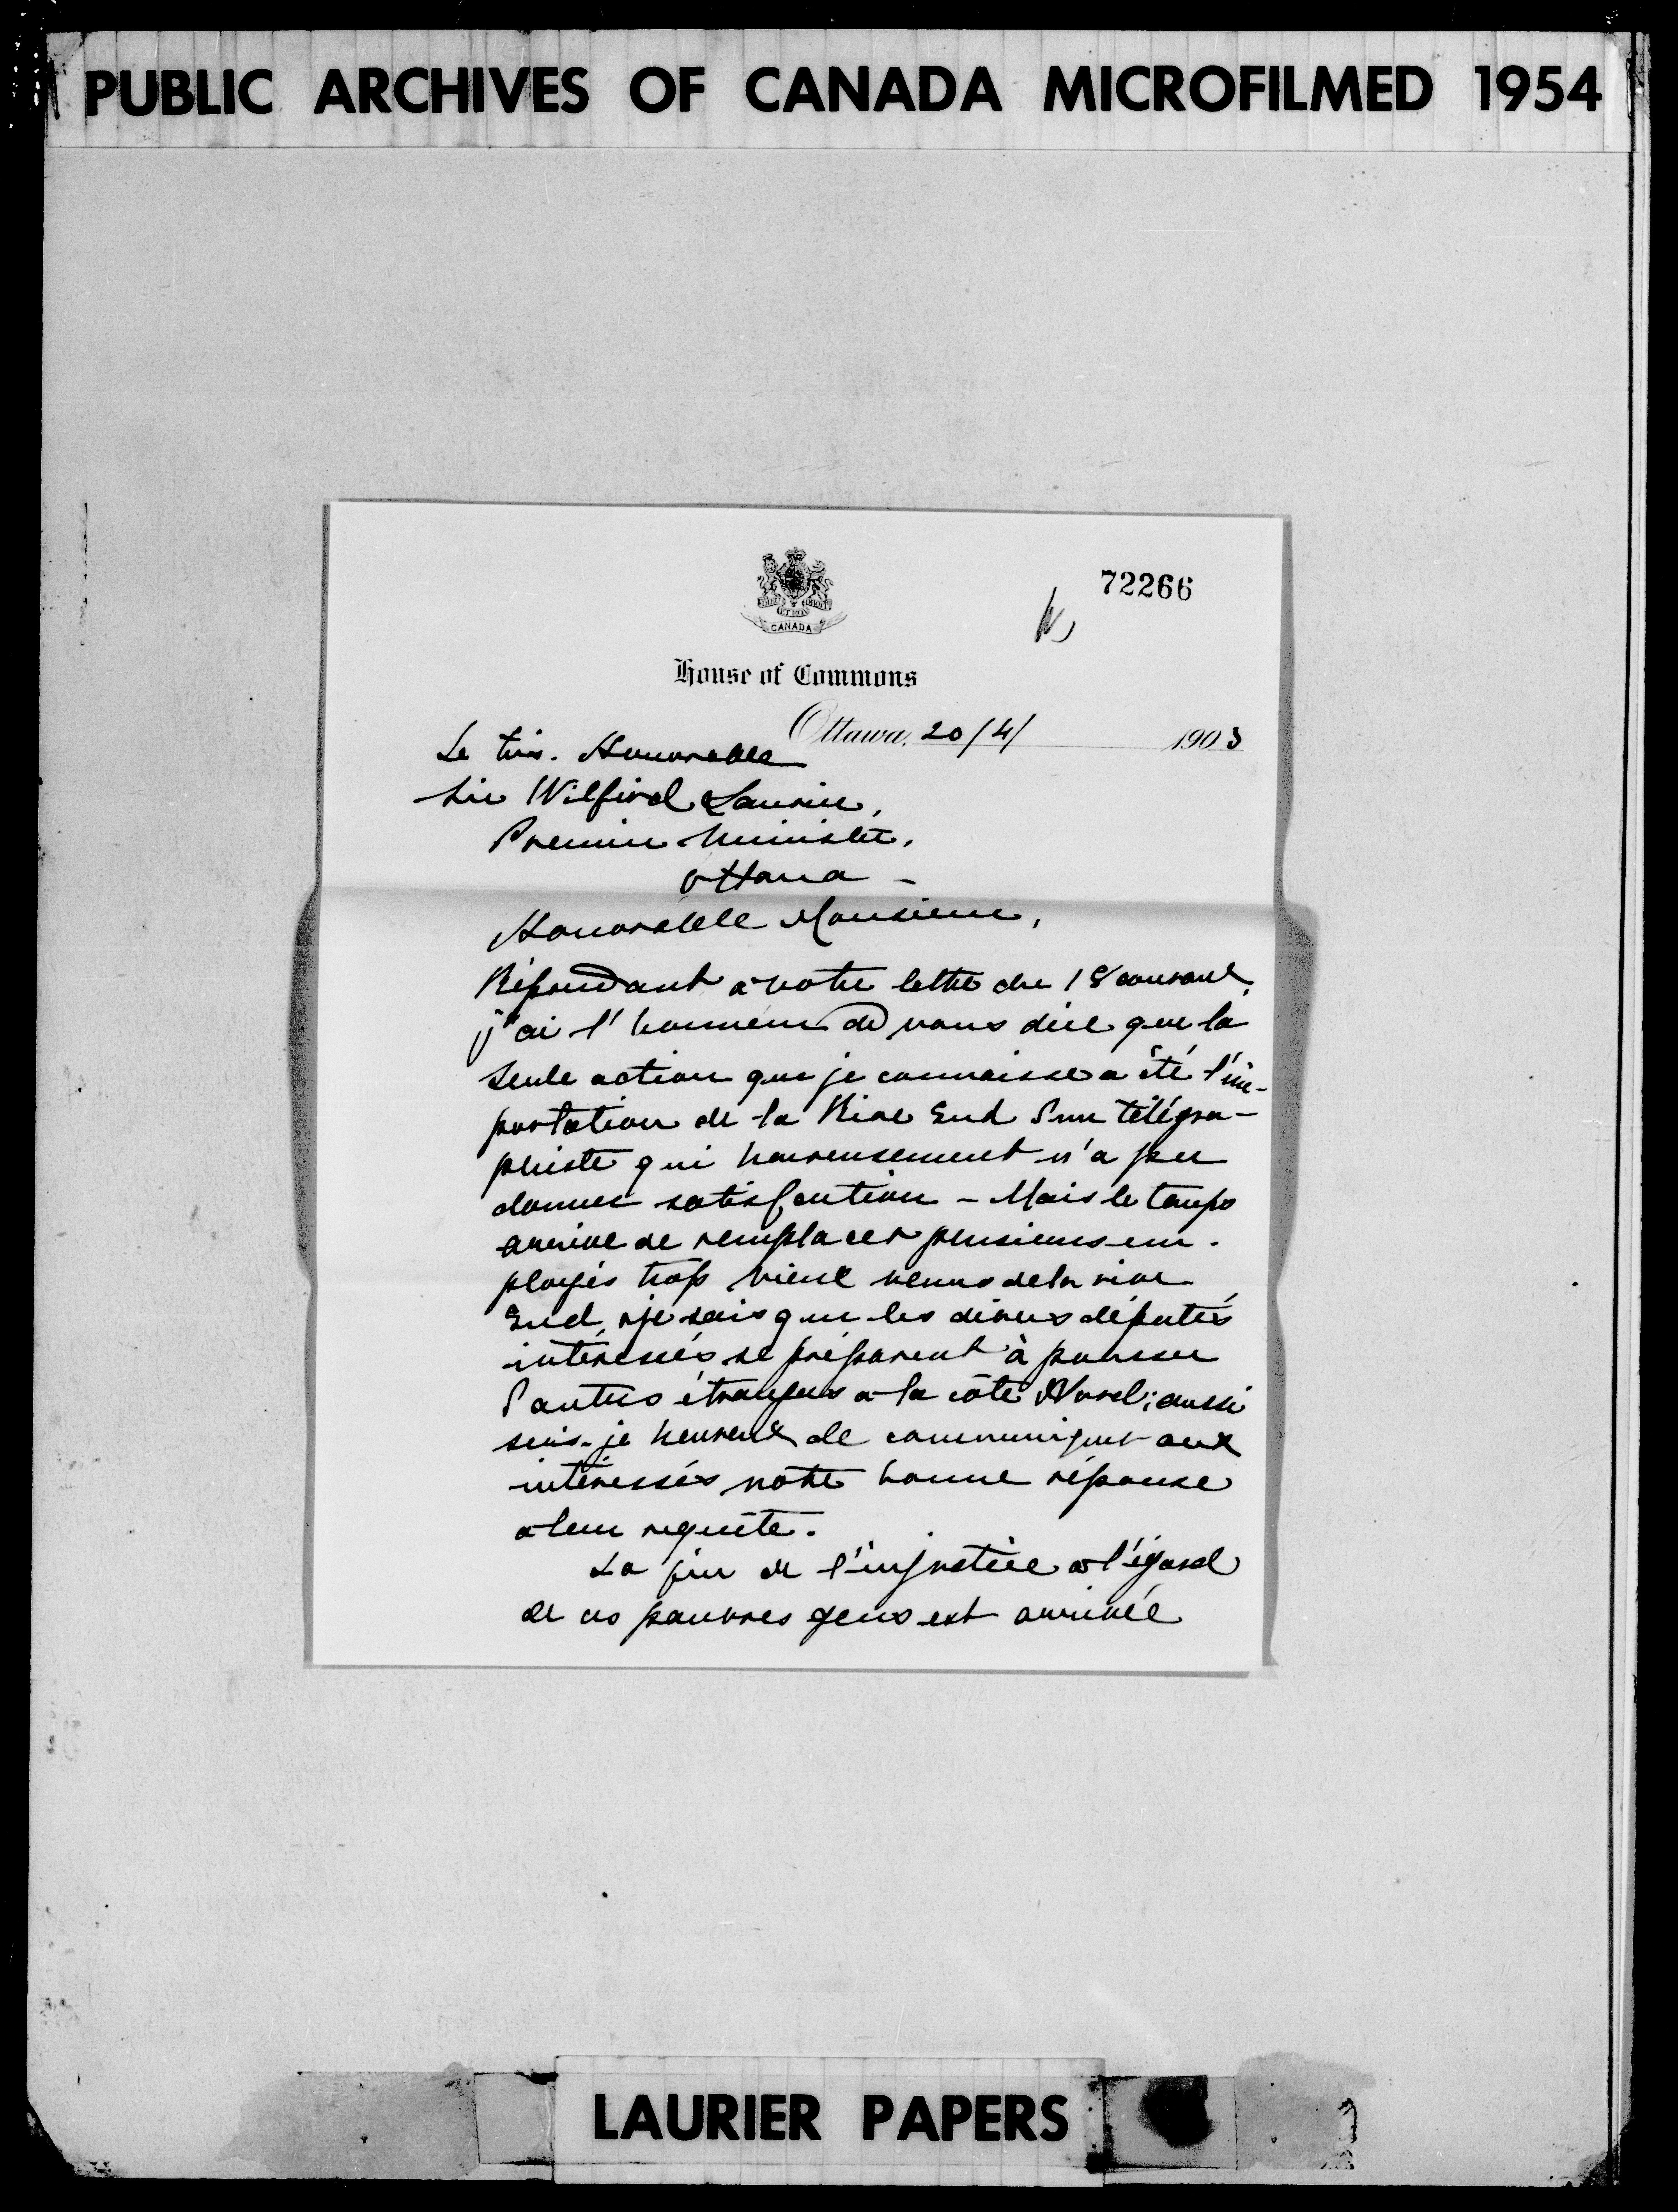 PUBLIC ARCHIVES OF CANADA MICROFILMED 1954
72266
CANADA
House of Commons
Ottawa, 20/4/ 1903
Le très. Honorable
Sir Wilfird Laurier,
Premier Ministre,
Ottawa -
Honorable Monsieur,
Répondant à votre lettre du 18 courant,
j'ai l'honneur de vous dire que la
seule action que je connaisse a été l'im-
portation de la Rive Sud d'un télégra-
phiste qui heureusement n'a pu
donner satisfaction - Mais le temps
arrive de remplacer plusieurs em-
ployés trop vieux venus de la rive
Sud, je sais que les divers députés
intéressés se préparent à pousser
d'autres étrangers à la côte Nord; aussi
suis-je heureux de communiquer aux
intéressés votre bonne réponse
à leur requête.
La fin de l'injustice à l'égard
de ces pauvres gens est arrivée
LAURIER PAPERS